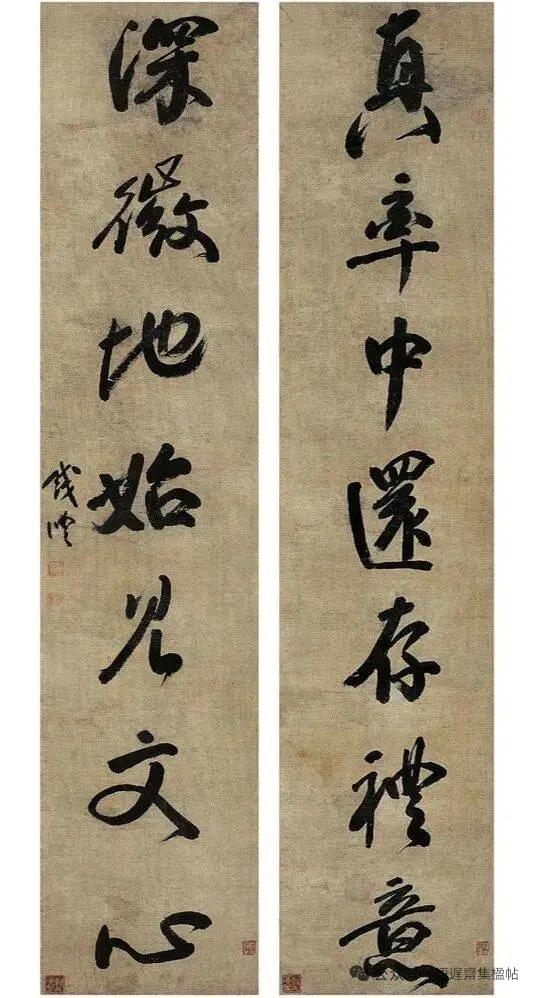 真率中還存禮意
深微地始見文心
錢灃
公众号
遲齋集楹帖